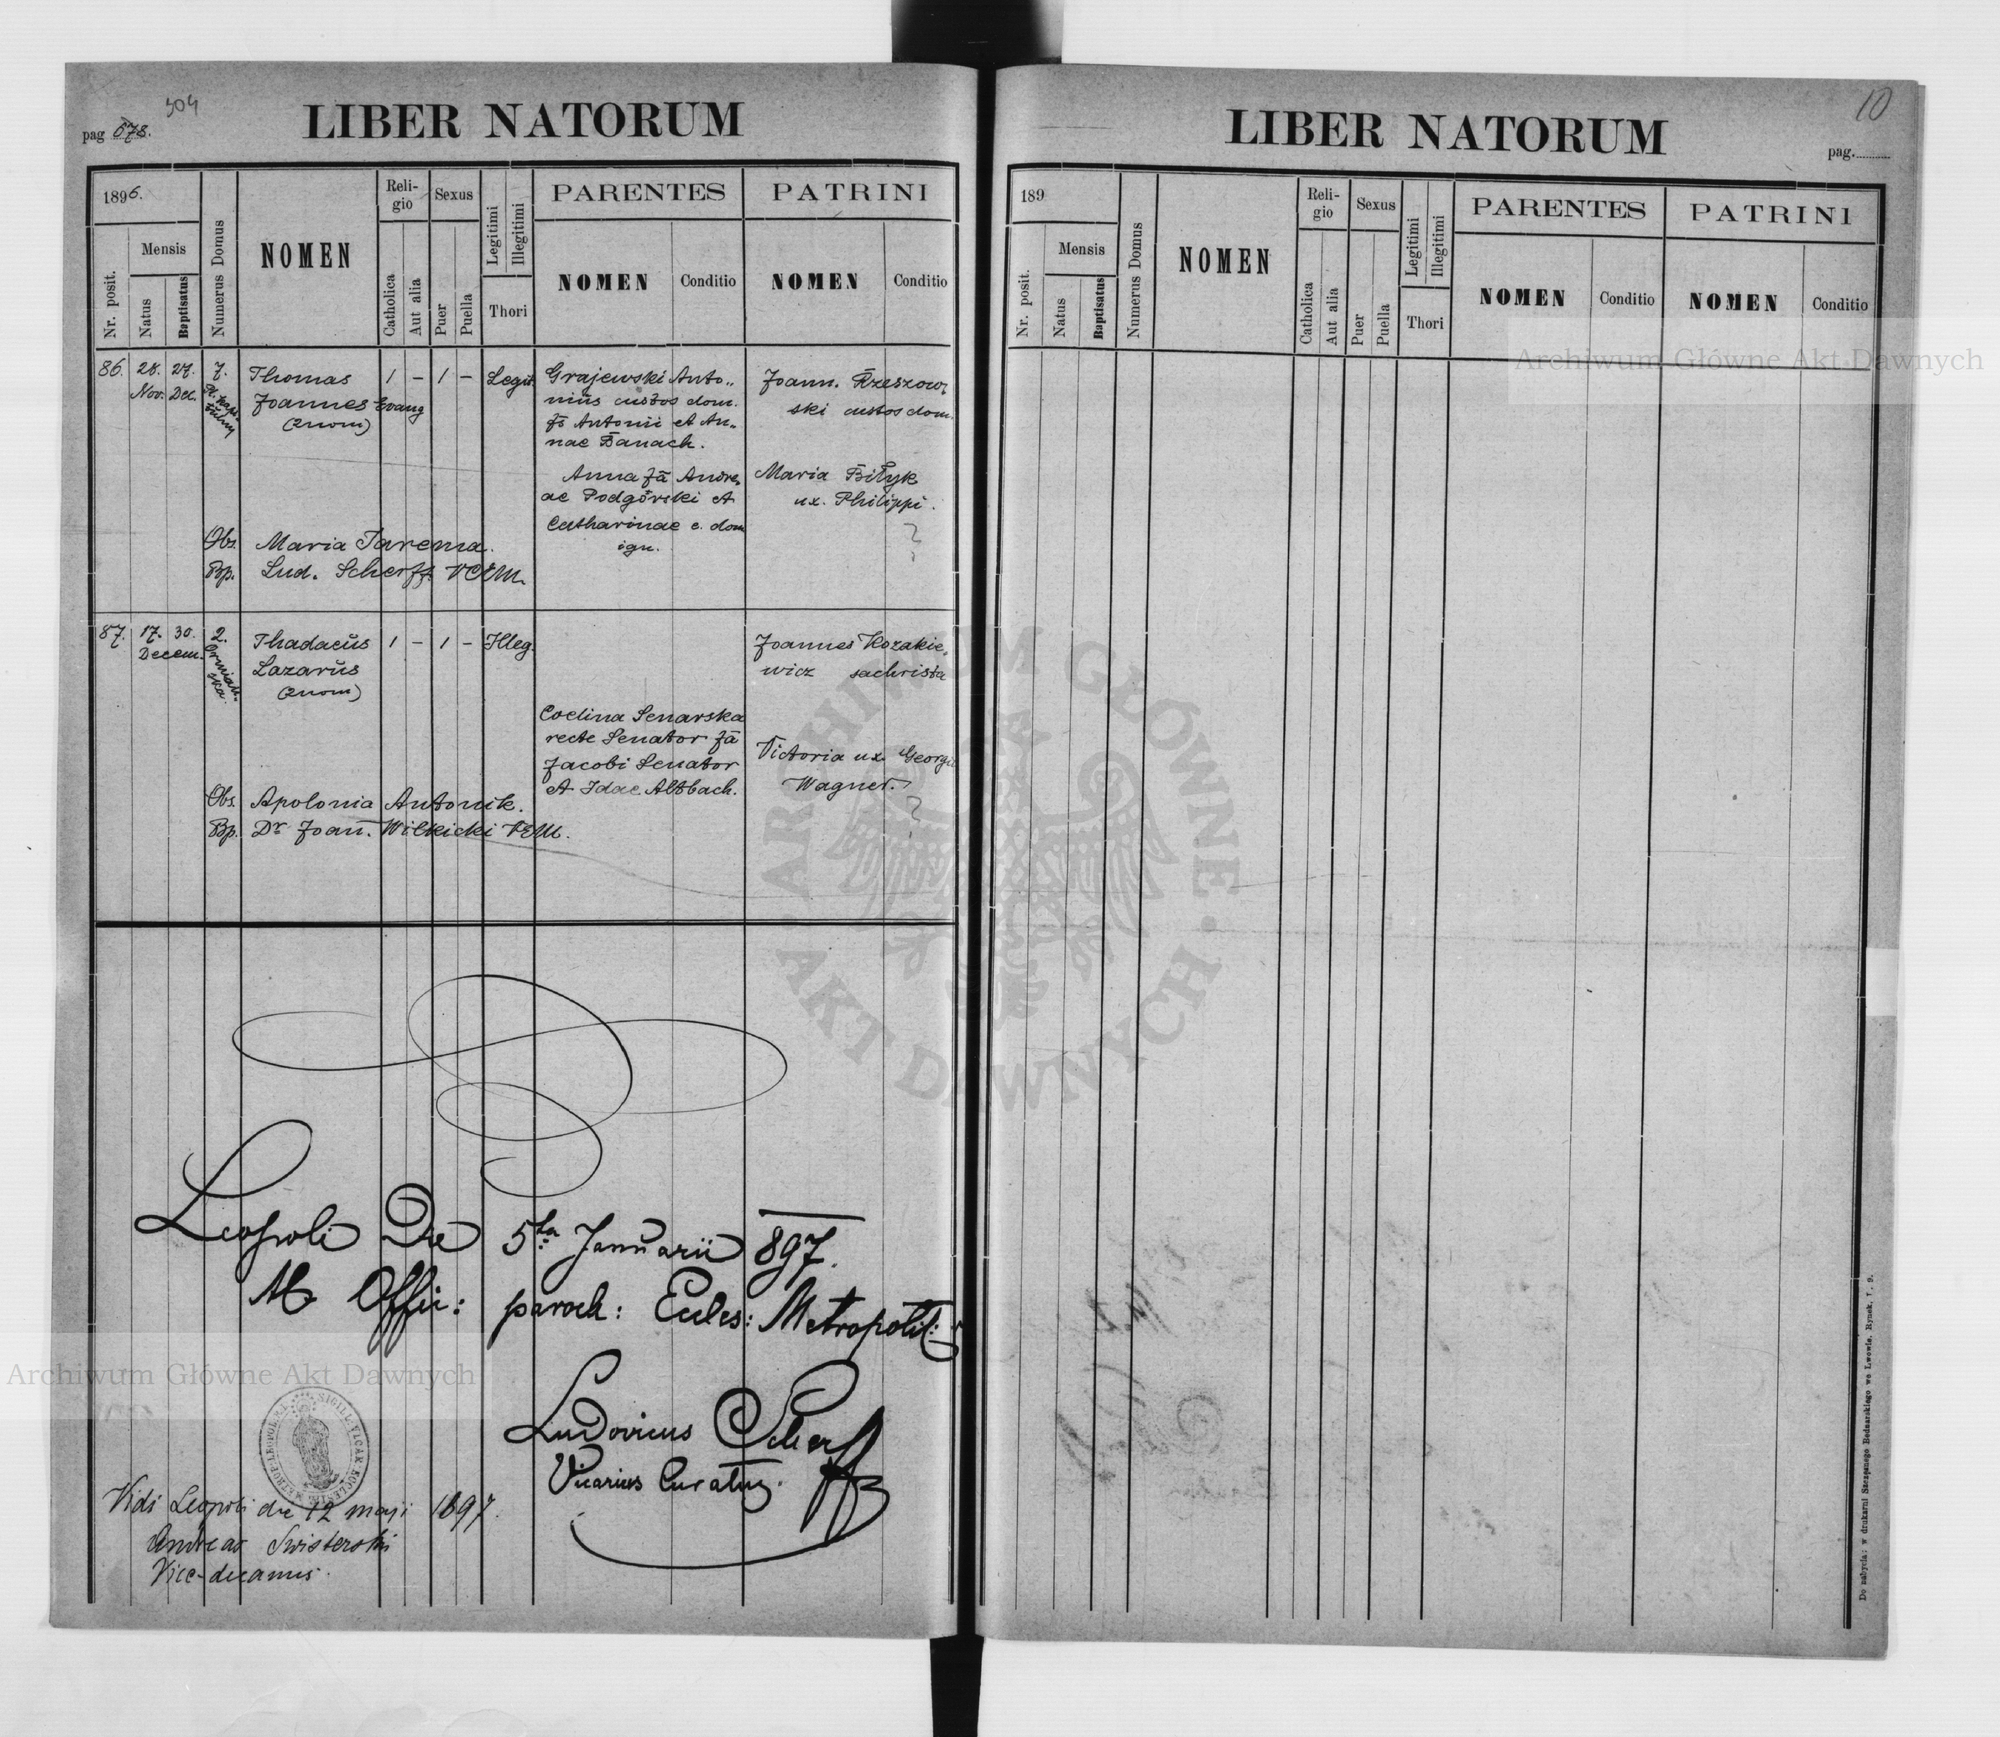 304
pag 578.
LIBER NATORUM
1896.
Mensis
Nr. posit.
Natus
Baptisatus
Numerus Domus
NOMEN
Reli-
gio
Catholica
Aut alia
Sexus
Puer
Puella
Legitimi
Illegitimi
Thori
PARENTES
NOMEN
Conditio
PATRINI
NOMEN
Conditio
86. 28. 27. 7. Thomas 1 - 1 - Legit. Grajewski Anto„ Joann. Rzeszow
Nov. Dec. Joannes Evang nius custos dom. ski custos dom.
(2nom) fs Antonii et An„
nae Banach.
Anna fa Andre Maria Biłyk
ae Podgórski et ux. Philippi.
Catharinae c. dom
ign. ?
Obs. Maria Jarema.
Bp. Lud. Scherff VCEM.
87. 17. 30. 2. Thadaeus 1 - 1 - Illeg. Joannes Kozakie„
Decem. Ormiań- Lazarus wicz sachrista
ska. (2nom)
Coelina Senarska
recte Senator fa Victoria ux. Georgii
Jacobi Senator Wagner.
et Idae Altbach. ?
Obs. Apolonia Antonik.
Bp. Dr Joan. Wilkicki VEM.
Leopoli Die 5ta Januarii 897.
Ab Offic: paroch: Eccles: Metropolit:
Ludovicus Scherff
Vicarius Curatus.
Vidi Leopoli die 12 maji 1897.
Andreas Swisterski
Vice-decanus.
10
LIBER NATORUM
pag.
189
Mensis
Nr. posit.
Natus
Baptisatus
Numerus Domus
NOMEN
Reli-
gio
Catholica
Aut alia
Sexus
Puer
Puella
Legitimi
Illegitimi
Thori
PARENTES
NOMEN
Conditio
PATRINI
NOMEN
Conditio
Do nabycia: w drukarni Szczęsnego Bednarskiego we Lwowie, Rynek, l. 9.
Archiwum Główne Akt Dawnych
Archiwum Główne Akt Dawnych
ARCHIWUM GŁÓWNE · AKT DAWNYCH ·